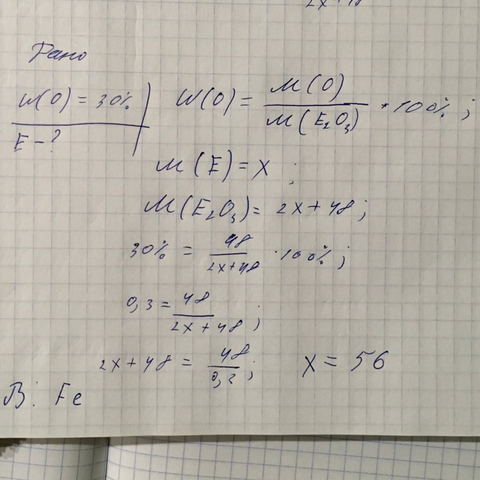 Дано
W(O) = 30%
E - ?
W(O) = M(O) / M(E₂O₃) • 100% ;
M(E) = x ;
M(E₂O₃) = 2x + 48 ;
30% = 48 / 2x+48 · 100% ;
0,3 = 48 / 2x + 48 ;
2x + 48 = 48 / 0,3 ; x = 56
В: Fe